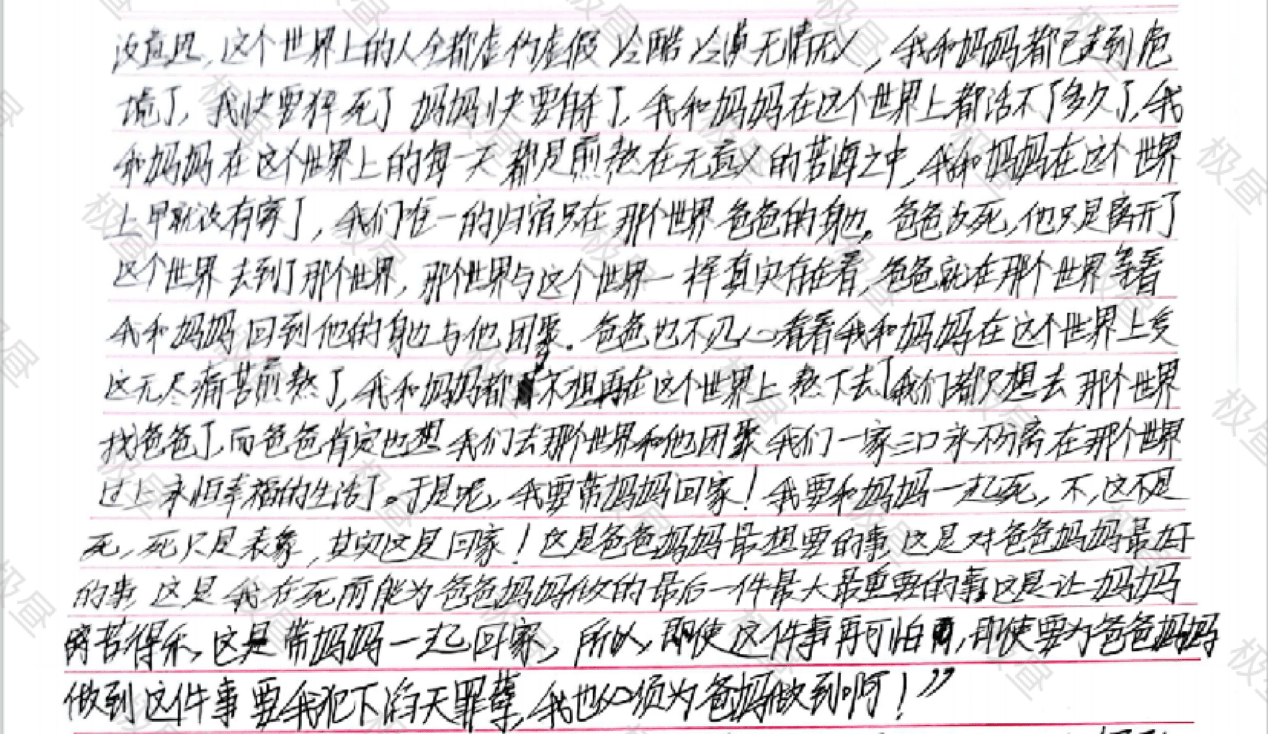 没意思，这个世界上的人全都虚伪虚假 冷酷 冷漠 无情无义，我和妈妈都已走到危
境了，我快要猝死了 妈妈快要自杀了，我和妈妈在这个世界上都活不了多久了，我
和妈妈在这个世界上的每一天 都是煎熬在无意义的苦海之中，我和妈妈在这个世界
上早就没有家了，我们唯一的归宿只在那个世界爸爸的身边。爸爸没死，他只是离开了
这个世界 去到了那个世界，那个世界与这个世界一样真实存在着，爸爸就在那个世界等着
我和妈妈回到他的身边与他团聚。爸爸也不忍心看着我和妈妈在这个世界上受
这无尽痛苦煎熬了，我和妈妈都不想再在这个世界上熬下去了我们都只想去那个世界
找爸爸了，而爸爸肯定也想我们去那个世界和他团聚 我们一家三口永不分离在那个世界
过上永恒幸福的生活了。于是呢，我要带妈妈回家！我要和妈妈一起死，不，这不是
死，死只是表象，其实这是回家！这是爸爸妈妈最想要的事 这是对爸爸妈妈最好
的事 这是我在死前能为爸爸妈妈做的最后一件最大最重要的事 这是让妈妈
离苦得乐，这是带妈妈一起回家，所以，即使这件事再可怕，即使要为爸爸妈妈
做到这件事要我犯下滔天罪孽，我也必须为爸妈做到啊！”
极昼